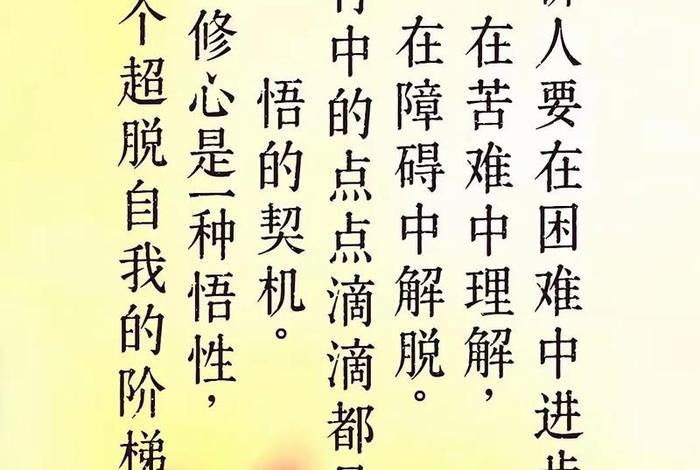 人要在困难中进步
在苦难中理解，
在障碍中解脱。
中的点点滴滴都
悟的契机。
修心是一种悟性，
个超脱自我的阶梯